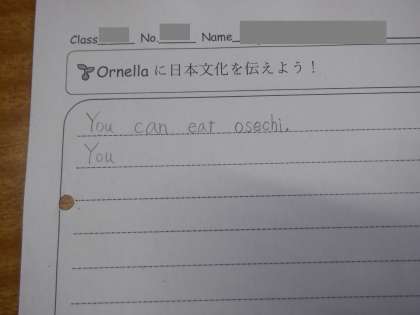 Class No. Name
Ornella に日本文化を伝えよう！
You can eat osechi.
You